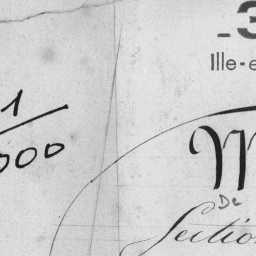 3
Ille-e
1
000
M
De
Sectio